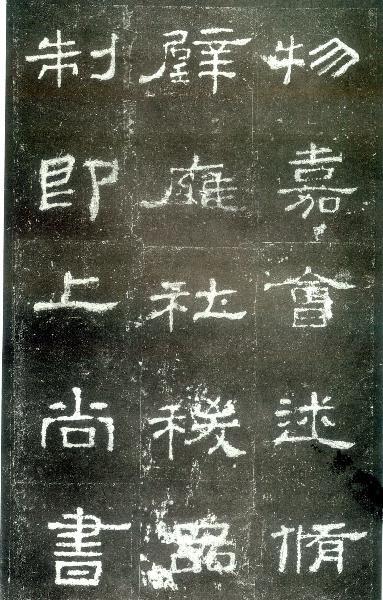 物嘉會述脩
璧雍社稷品
制即上尚書